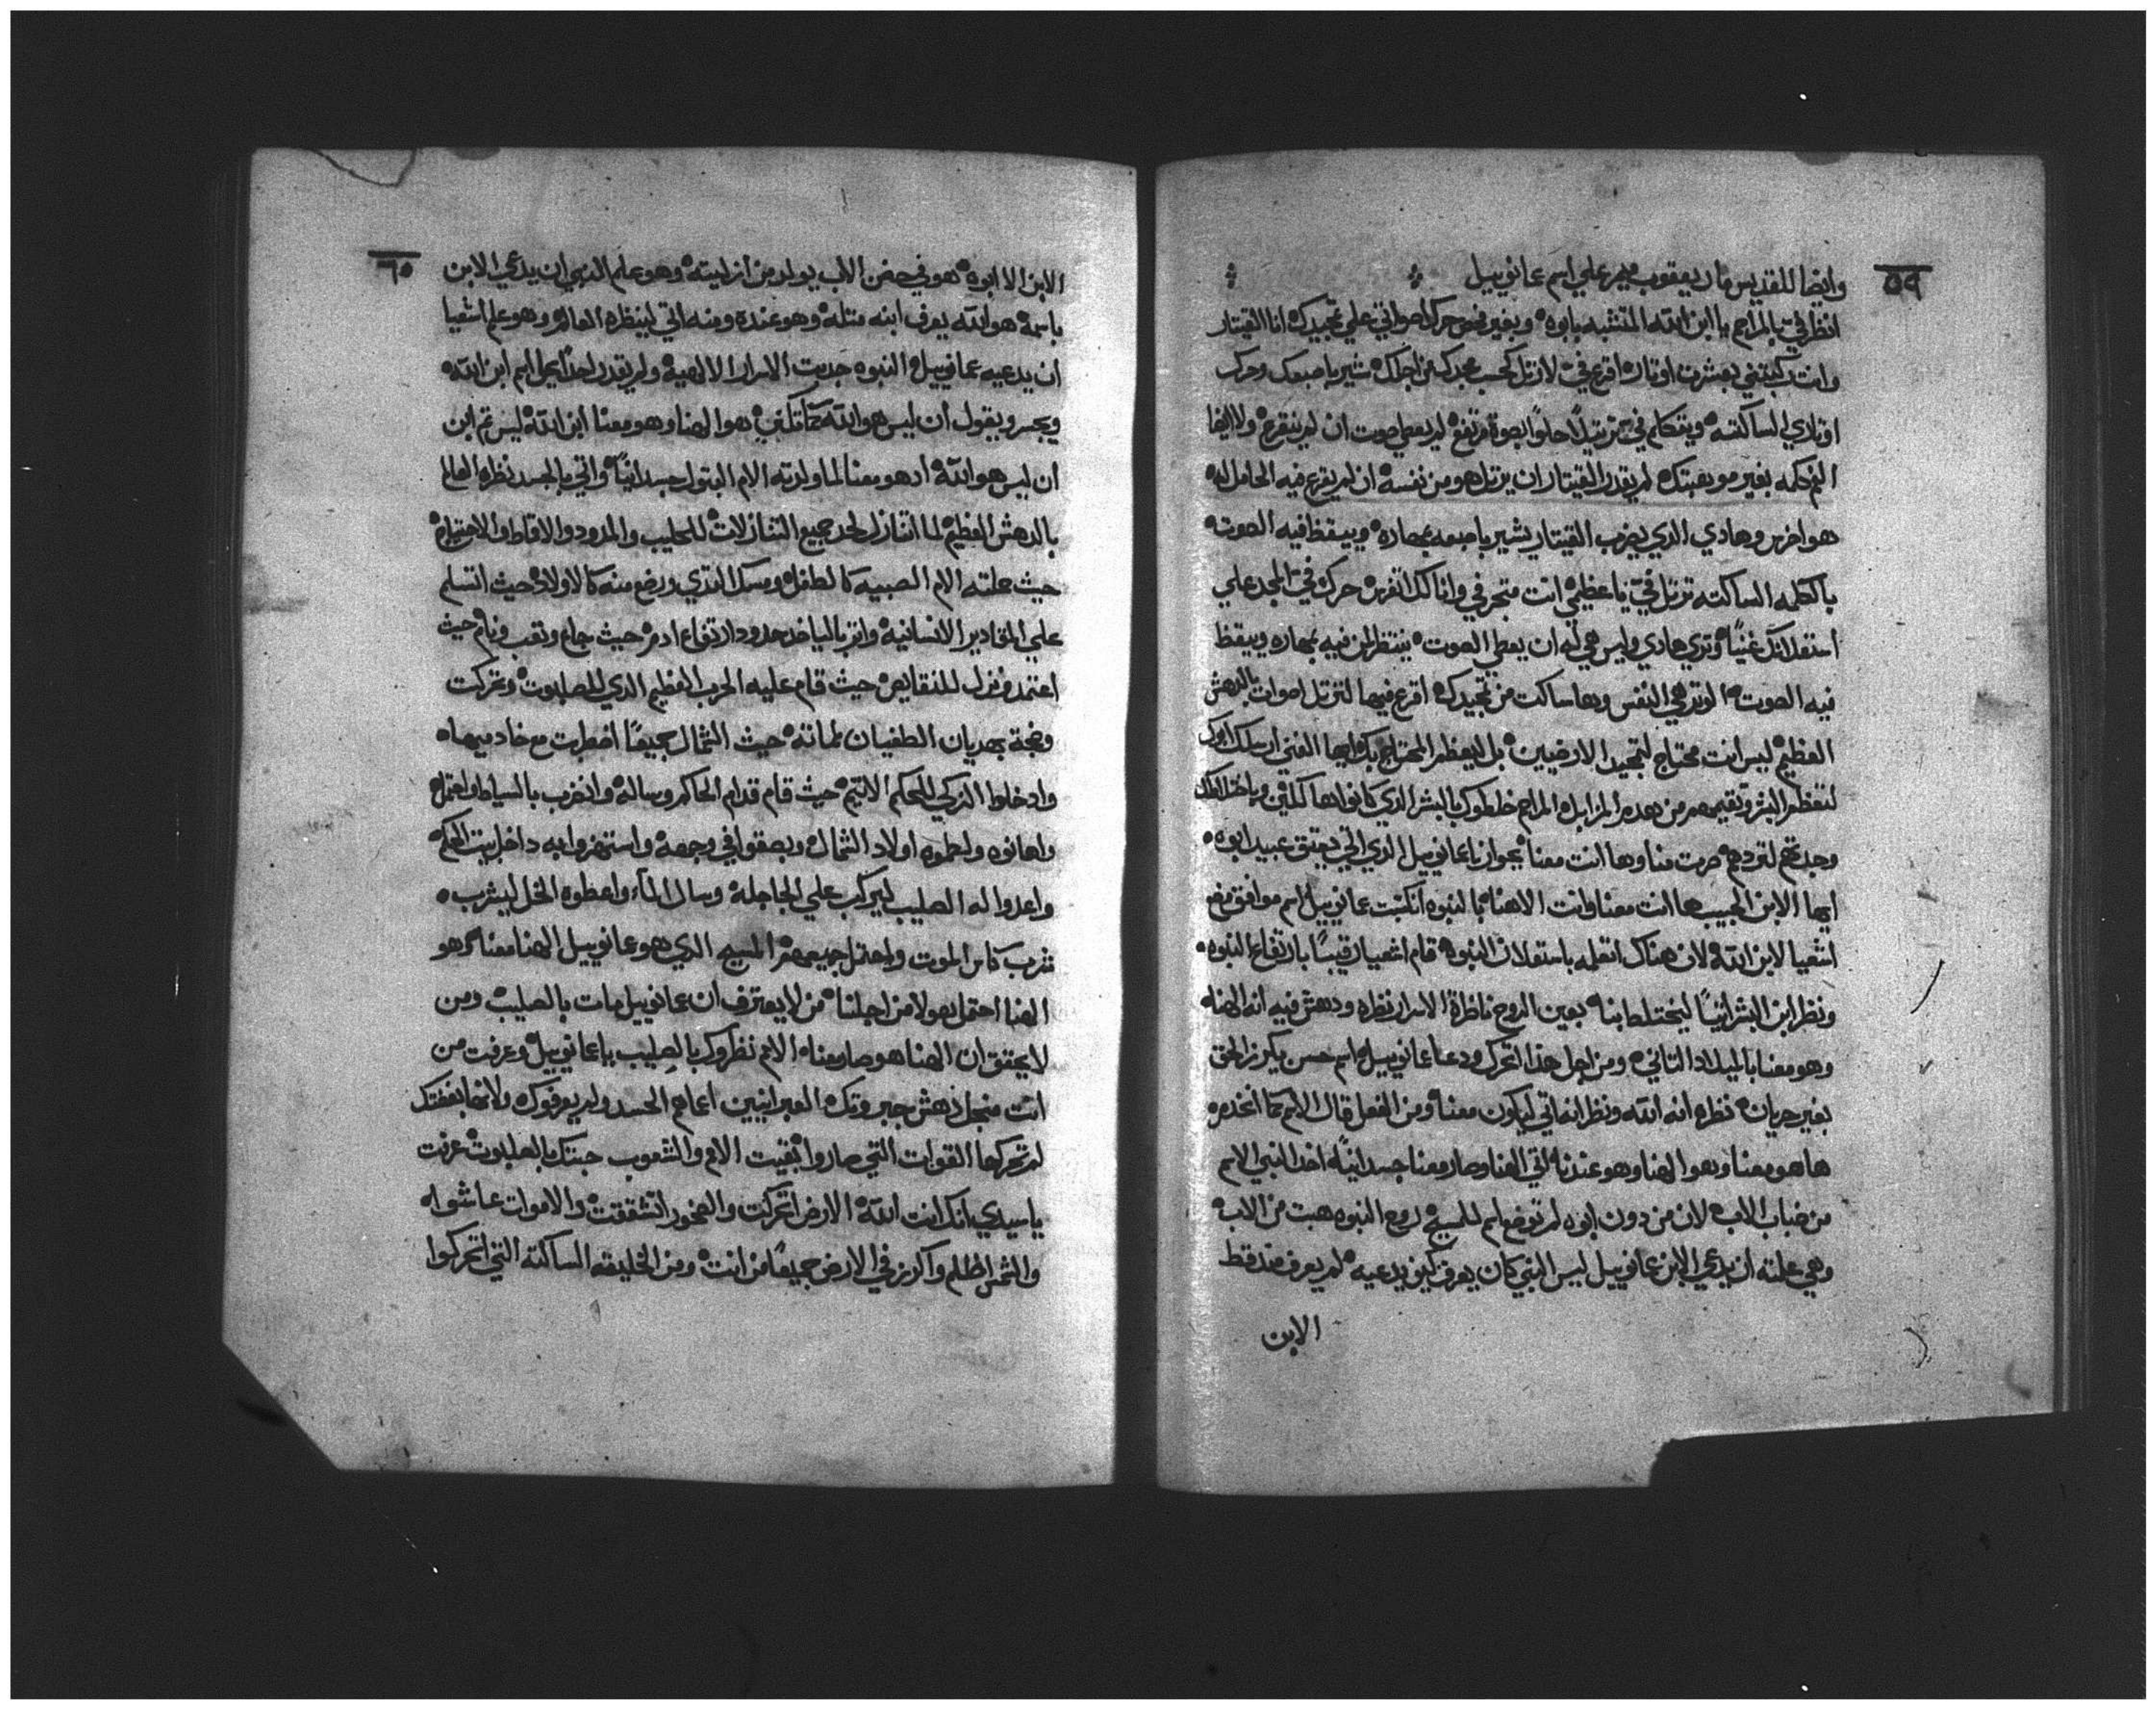 ٥٩
وايضا للقديس مار يعقوب ميمر علي اسم عمانوييل
انظر فيّ بالمراحم يا ابن الله المتشبه بابوه وبغير فحص حرك اصواتي علي تمجيدك انا القيتار
وانت ركبتني بعشرت اوتار اقرع فيّ لارتل كحسب مجدك من اجلك شير باصبعك وحرك
اوتاري الساكته ويتكلم فيّ ترتيلاً حلواً بصوة مرتفع لم يعطي صوت ان لم ينقرع ولا ايضا
الكلمه بغير موهبتك لم يقدر القيتار ان يرتل هو من نفسه ان لم يقرع فيه الحامل له
هو اخرس وهادي الذي يضرب القيتار يشير باصبعه بمهاره وييقظ فيه الصوت
بالكلمه الساكته ترتل فيّ يا عظيم انت متجر في وانا لك اتفرس حرك فيّ المجد علي
استعلانك غنياً وتري هادي وليس هي له ان يعطي الصوت ينتظر لمن فيه مهاره وييقظ
فيه الصوت الوتر هي النفس وها ساكت من تمجيدك اقرع فيها لترتل اصوات بالدهش
العظيم ليس انت محتاج لتمجيد الارضيين بل ليعظم المحتاج بك ايها الغني ارسلك ابوك
لتعظم البشر وتقيمهم من هده المزابل المراحم خلطوك بالبشر الذي كانوا هالكين
وجدتهم لتردهم صرت منا وها انت معنا بجوار يا عمانوييل الذي اتي يعتق عبيد ابوه
ايها الابن الحبيب ها انت معنا وانت الاهنا بالنبوه انكتبت عمانوييل اسم موافق وضع
اشعيا لابن الله لان هناك اتعلمه باستعلان النبوه قام اشعيا رقيباً بارتفاع النبوه
ونظر ابن البشر انياً ليختلط بنا بعين الروح ناظرة الاسرار نظره ودهش فيه انه الهنا
وهو معنا بالميلاد الثاني ومن اجل هذا اتحرك ودعا عمانوييل اسم حسن يكرز الحق
بغير جريان نظره انه الله ونظر انه اتي ليكون معنا ومن الفعل قال الاسم كما اتخدمه
ها هو معنا وهو الهنا وهو عندنا اتي الهنا وصار معنا جسدانياً اخد النبي الاسم
من ضباب الاب لان من دون ابوه لم توضع اسم للمسيح روح النبوه هبت من الاب
وهي علمته ان يدعي الابن عمانوييل ليس النبي كان يعرف كيف يدعيه لم يعرف منه قط
الابن
٦٠
الابن الا ابوه هو في حضن الاب يولد من ازليته وهو علم النبي ان يدعي الابن
باسمه هو الله يعرف ابنه مثله وهو عنده ومنه اتي لينظره العالم وهو علم اشعيا
ان يدعيه عمانوييل النبوه جريت الاسرار الالهية ولم يقدر احداً يحل اسم ابن الله
ويجسر ويقول ان ليس هو الله كما كتب هو الهنا وهو معنا ابن الله ليس ثم ابن
ان ليس هو الله ادهو معنا لما ولدته الام البتول جسدانياً واتي بالجسد نظره العالم
بالدهش العظيم لما اتنازل لحد جميع التنازلات للحليب والمدود والاقاط والاحتياج
حيث علته الام الصبيه كالطفل ومسك الثدي ورضع منه كالاولاد حيث اتسلم
علي المقادير الانسانيه واتربا لياخد حدود ارتفاع ادم حيث جاع وتعب ونام حيث
اعتمد ونزل للنقايص حيث قام عليه الحرب العظيم الذي للصلبوت وتحركت
وضجة بهديان الطغيان لماته حيث الشمال جميعاً اضطربت مع خادميها
وادخلوا الزكي للحكم الاتيم حيث قام قدام الحاكم وساله وانضرب بالسياط واحتمل
واهانوه ولطموه اولاد الشمال وبصقوا في وجهه واستهزوا به داخل بيت الحكم
واعدوا له الصليب ليركب علي الجاجلة وسال المآء واعطوه الخل ليشرب
شرب كاس الموت واحتمل جميعهم المسيح الذي هو عمانوييل الهنا معنا وهو
الهنا احتمل هولا من اجلنا من لا يعترف ان عمانوييل مات بالصليب ومن
لا يحقق ان الهنا هو صار معنا الامم نظروك بالصليب يا عمانوييل وعرفت من
انت منجل دهش جبروتك العبرانيين اعماهم الحسد ولم يعرفوك ولانها بغضتك
لم تحركها القوات التي صاروا بقيت الامم والشعوب حبتك بالصلبوت عرفت
يا سيدي انك انت الله الارض اتحركت والصخور اتشققت والاموات عاشوا
والشمس اظلم واكرز في الارض جميعاً من انت ومن الخليقه الساكته التي اتحركوا